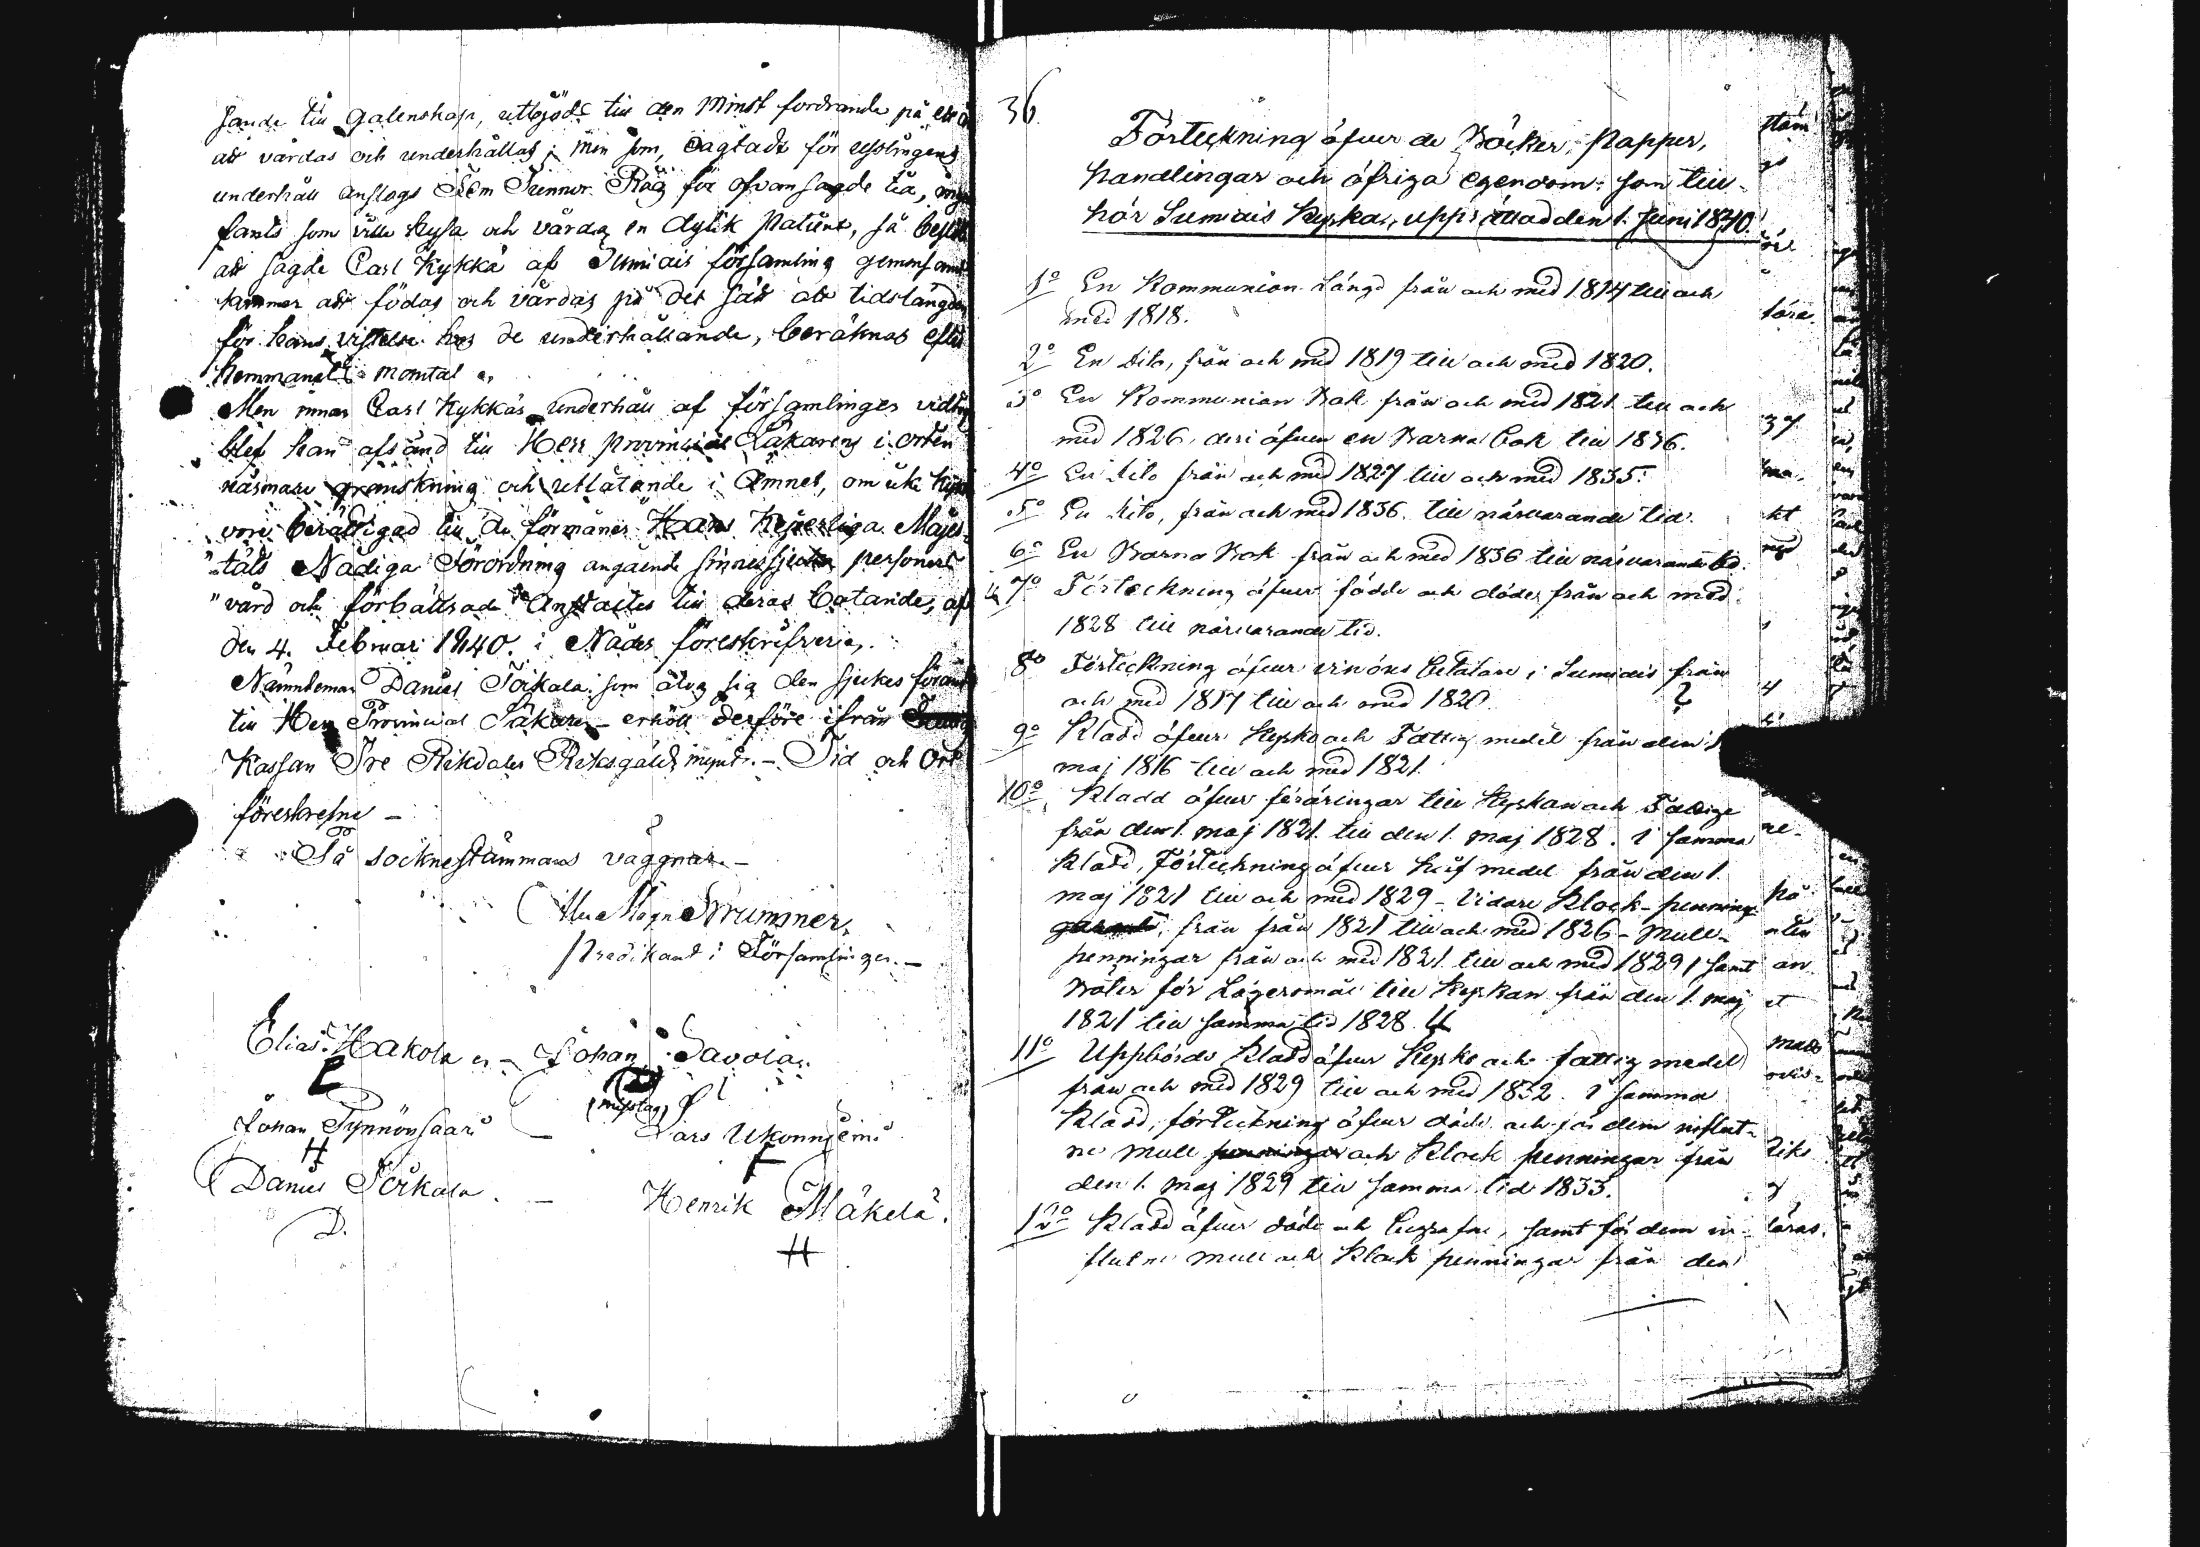 sande till galenskap, utbjöds till den Minst fordrande på ett år
att vårdas och underhållas; Men som, oagtadt för usslingens
underhåll anslogs Fem Tunnor Råg för ofvansagde tid, ingen
fants som ville hysa och vårda en dylik Patient, så beslöts
att sagde Carl Kykkä af Sumiais församling gemensamt
kommer att födas och vårdas på det sätt att tidslängden
för hans vistelse hos de underhållande, beräknas efter
hemmanets mantal
Men innan Carl Kykkäs underhåll af församlingen vidtog
blef han afsänd till Herr provincial Läkarens i orten
närmare granskning och utlåtande i Ämnet, om icke Kykkä
vore berättigad till de förmåner Hans Kejserliga Majes-
"täts Nådiga Förordning angående sinnessjuka personers
"vård och förbättrade Anstalter till deras botande, af
den 4. Februari 1840. i Nåder föreskrifver.
Nämndeman Daniel Toikala som åtog sig den sjukes
till Herr Provincial Läkaren - erhöll derföre ifrån
Kassan Tre Rikdaler Riksgälds mynt. - Tid och Ort
föreskrefne -
På sockneståmmans vägnar. -
Magn Brummer,
Predikant i Församlingen. -
Elias Hakola - Johan Savola
E
(misstag)
Johan Tynnönsaari - Lars Ukonniemi
H
Daniel Toikala. - Henrik Mäkelä.
D.
H
36.
Förteckning öfver de Böcker, Papper,
handlingar och öfriga egendom som till-
hör Sumiais Kyrka, upprättad den 1. Juni 1840.
1o En Kommunion Längd från och med 1814 till och
med 1818.
2o En dito, från och med 1819 till och med 1820.
3o En Kommunion Bok från och med 1821 till och
med 1826, deri äfven en Barna bok till 1836.
4o En dito från och med 1827 till och med 1835.
5o En dito, från och med 1836 till närvarande tid.
6o En Barna Bok från och med 1836 till närvarande tid.
7o Förteckning öfver födde och döde, från och med
1828 till närvarande tid.
8o Förteckning öfver betalare i Sumiais från
och med 1817 till och med 1820
9o Kladd öfver Kyrko och Fattig medel från den 1
maj 1816 till och med 1821.
10o Kladd öfver föräringar till Kyrkan och Fattige
från den 1. maj 1821 till den 1. maj 1828. I samma
Kladd, Förteckning öfver Håf medel från den 1.
maj 1821 till och med 1829 - Vidare Klock-penning
från från 1821 till och med 1826 - Mull-
penningar från och med 1821 till och med 1829 samt
Böter för Lägersmål till Kyrkan från den 1. maj
1821 till samma tid 1828.
11o Uppbörds Kladd öfver Kyrko och fattig medel
från och med 1829 till och med 1832. I samma
Kladd, förteckning öfver döde och för dem influt-
ne mull penningar och Klock penningar från
den 1. maj 1829 till samma tid 1833.
12o Kladd öfver döde och begrafne, samt för dem in-
flutne mull och Klock penningar från den